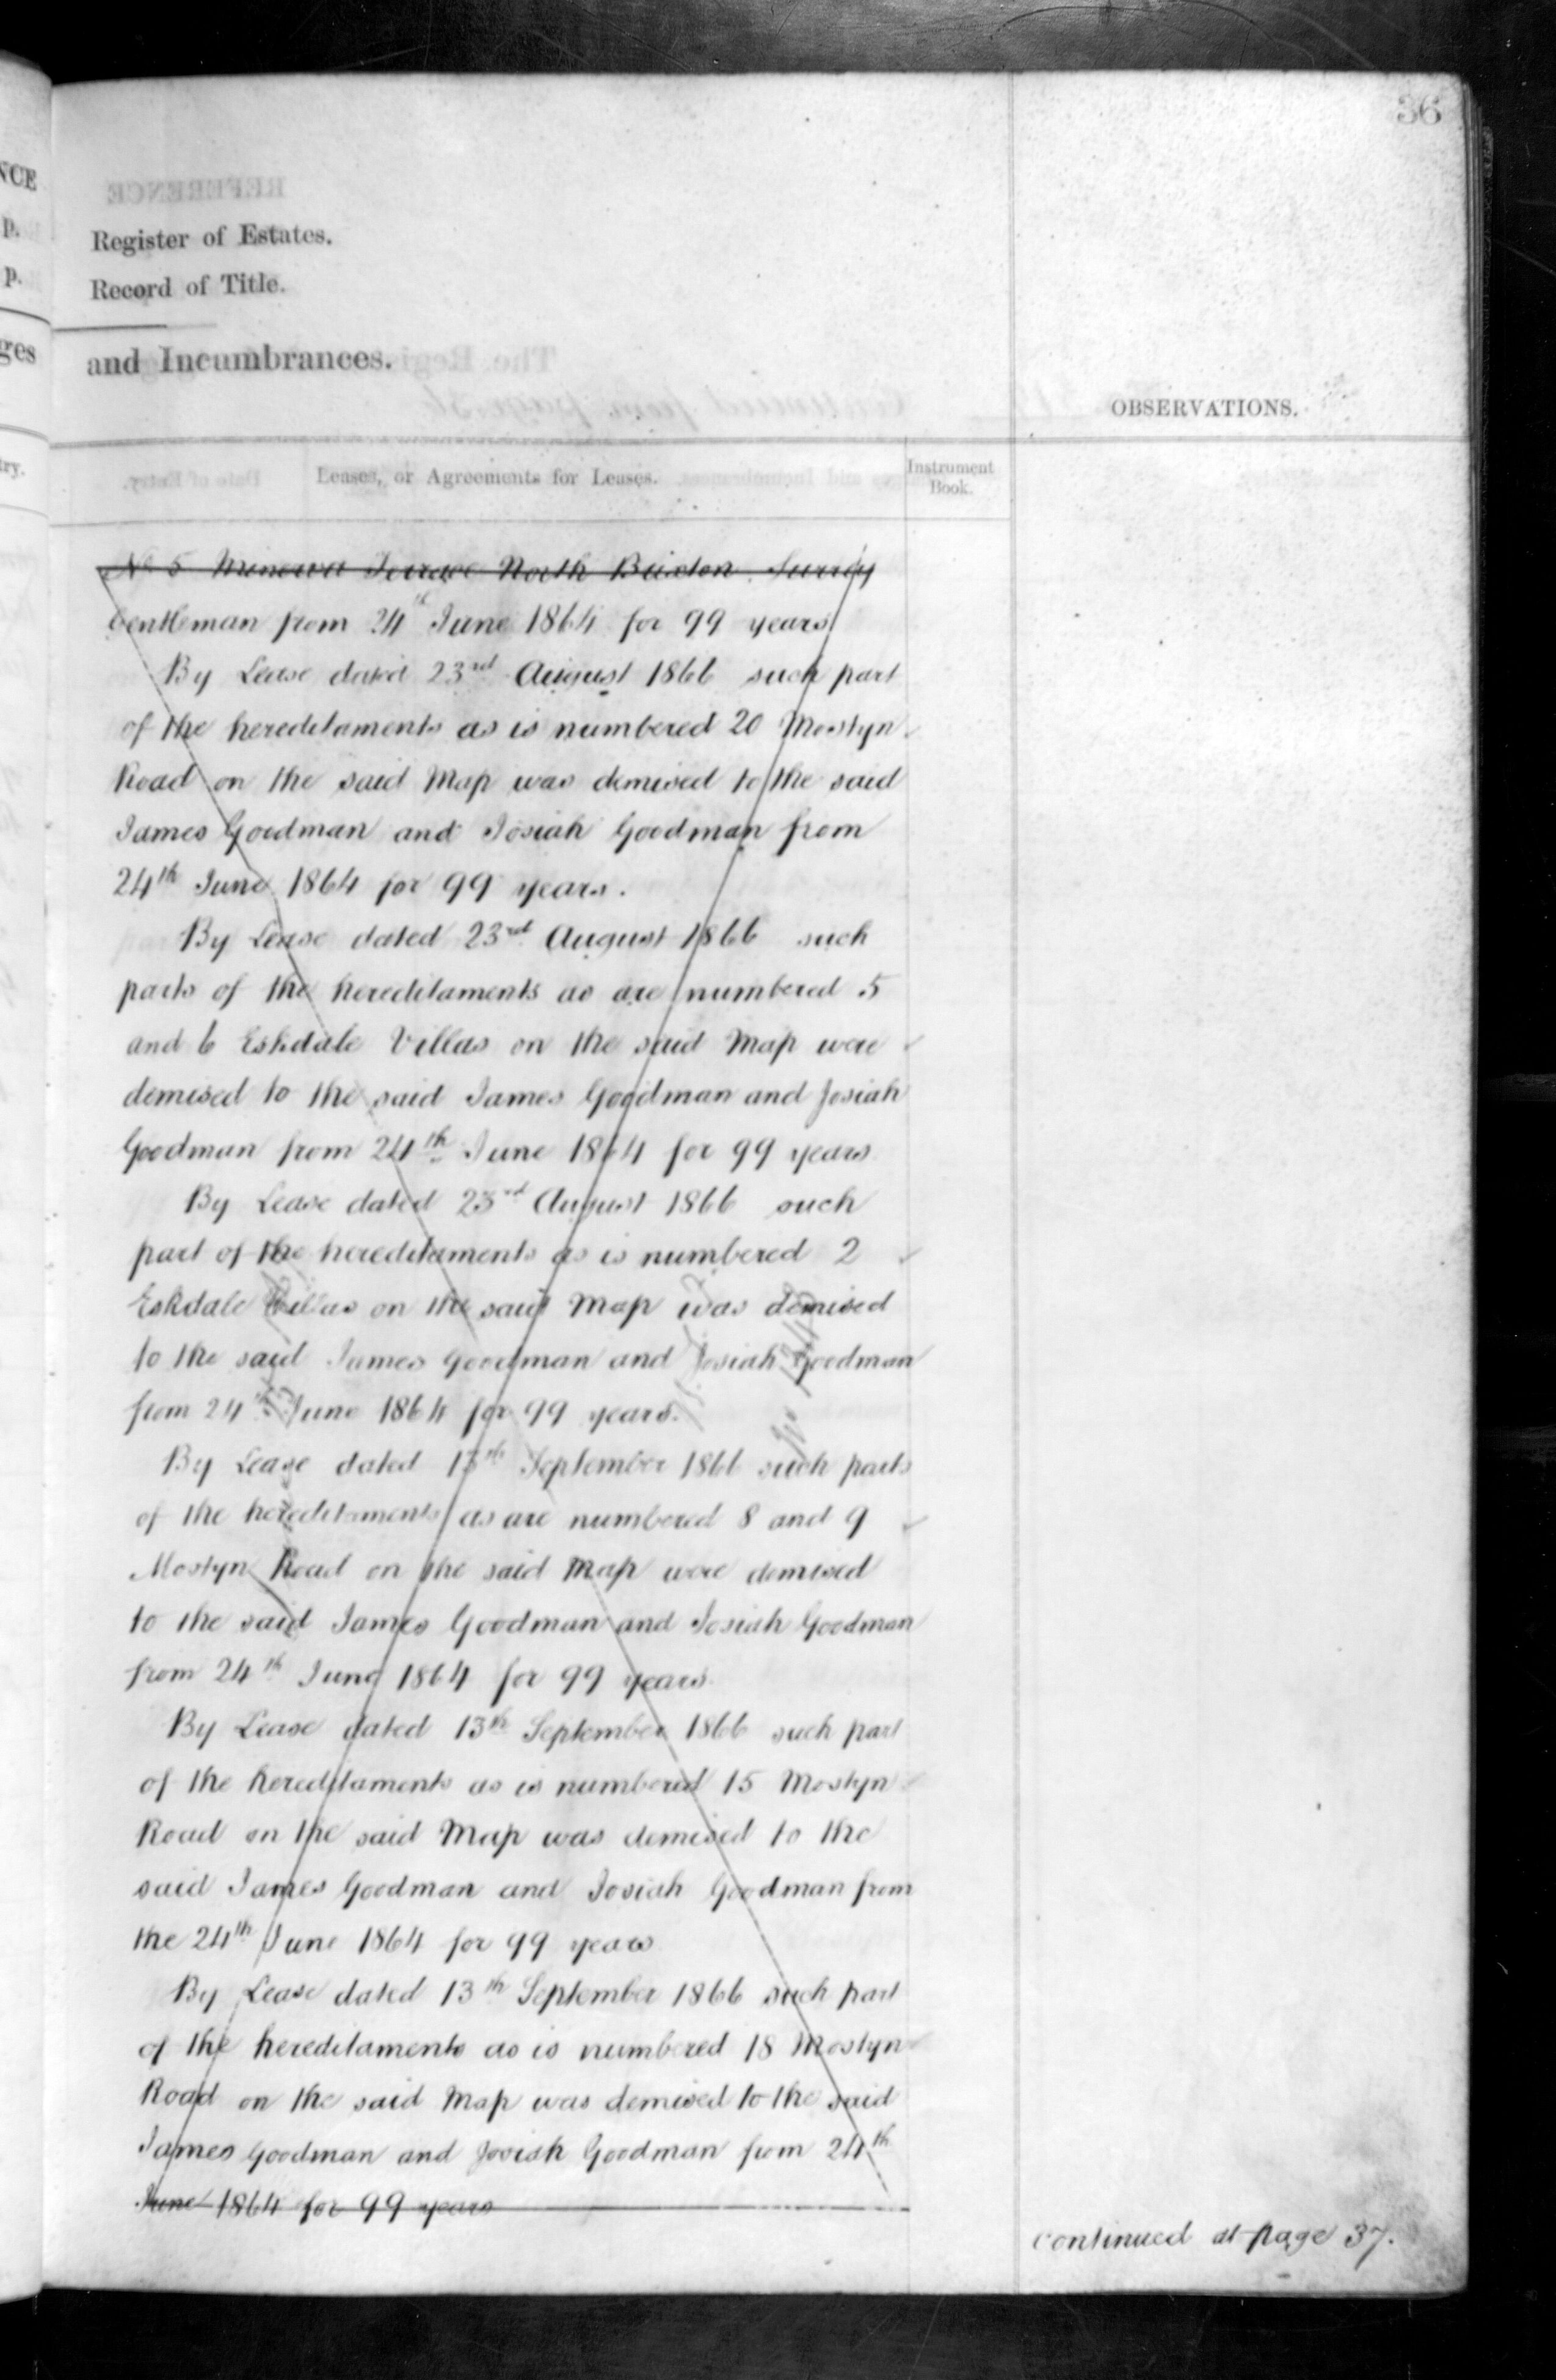 36
Register of Estates.
Record of Title.
and Incumbrances.
OBSERVATIONS.
Leases, or Agreements for Leases.
Instrument
Book.
No 5 Minerva Terrace North Brixton Surrey
Gentleman from 24th June 1864 for 99 years
By Lease dated 23rd August 1866 such part
of the hereditaments as is numbered 20 Mostyn
Road on the said Map was demised to the said
James Goodman and Josiah Goodman from
24th June 1864 for 99 years.
By Lease dated 23rd August 1866 such
parts of the hereditaments as are numbered 5
and 6 Eskdale Villas on the said Map were
demised to the said James Goodman and Josiah
Goodman from 24th June 1864 for 99 years
By Lease dated 23rd August 1866 such
part of the hereditaments as is numbered 2
Eskdale Villas on the said Map was demised
to the said James Goodman and Josiah Goodman
from 24th June 1864 for 99 years.
By Lease dated 13th September 1866 such parts
of the hereditaments as are numbered 8 and 9
Mostyn Road on the said Map were demised
to the said James Goodman and Josiah Goodman
from 24th June 1864 for 99 years
By Lease dated 13th September 1866 such part
of the hereditaments as is numbered 15 Mostyn
Road on the said Map was demised to the
said James Goodman and Josiah Goodman from
the 24th June 1864 for 99 years
By Lease dated 13th September 1866 such part
of the hereditaments as is numbered 18 Mostyn
Road on the said Map was demised to the said
James Goodman and Josiah Goodman from 24th
June 1864 for 99 years
continued at page 37.